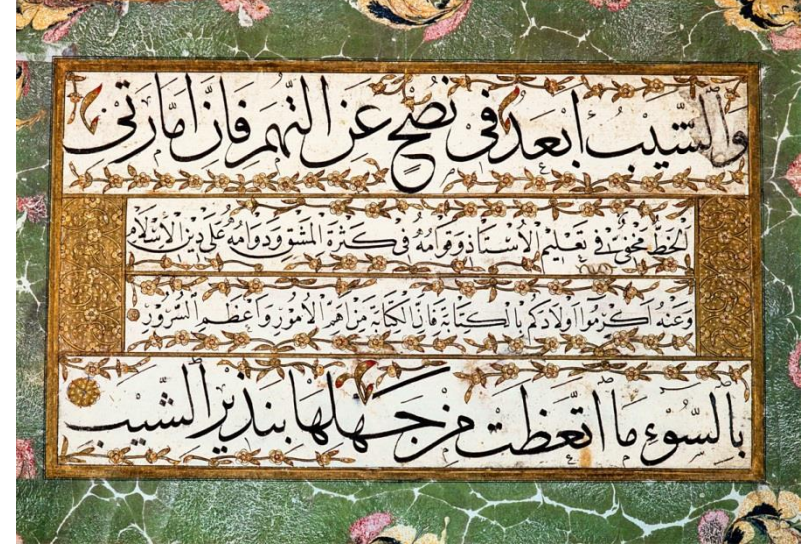 وَالشَّيْبُ أَبْعَدُ فِي نُصْحٍ عَنِ التُّهَمِ فَإِنَّ أَمَّارَتِي
الْخَطُّ مَخْفِيٌّ فِي تَعْلِيمِ الْأُسْتَاذِ وَقَوَامُهُ فِي كَثْرَةِ الْمَشْقِ وَدَوَامُهُ عَلَى دِينِ الْإِسْلَامِ
وَعَنْهُ أَكْرِمُوا أَوْلَادَكُمْ بِالْكِتَابَةِ فَإِنَّ الْكِتَابَةَ مِنْ أَهَمِّ الْأُمُورِ وَأَعْظَمِ السُّرُورِ
بِالسُّوءِ مَا اتَّعَظَتْ مِنْ جَهْلِهَا بِنَذِيرِ الشَّيْبِ